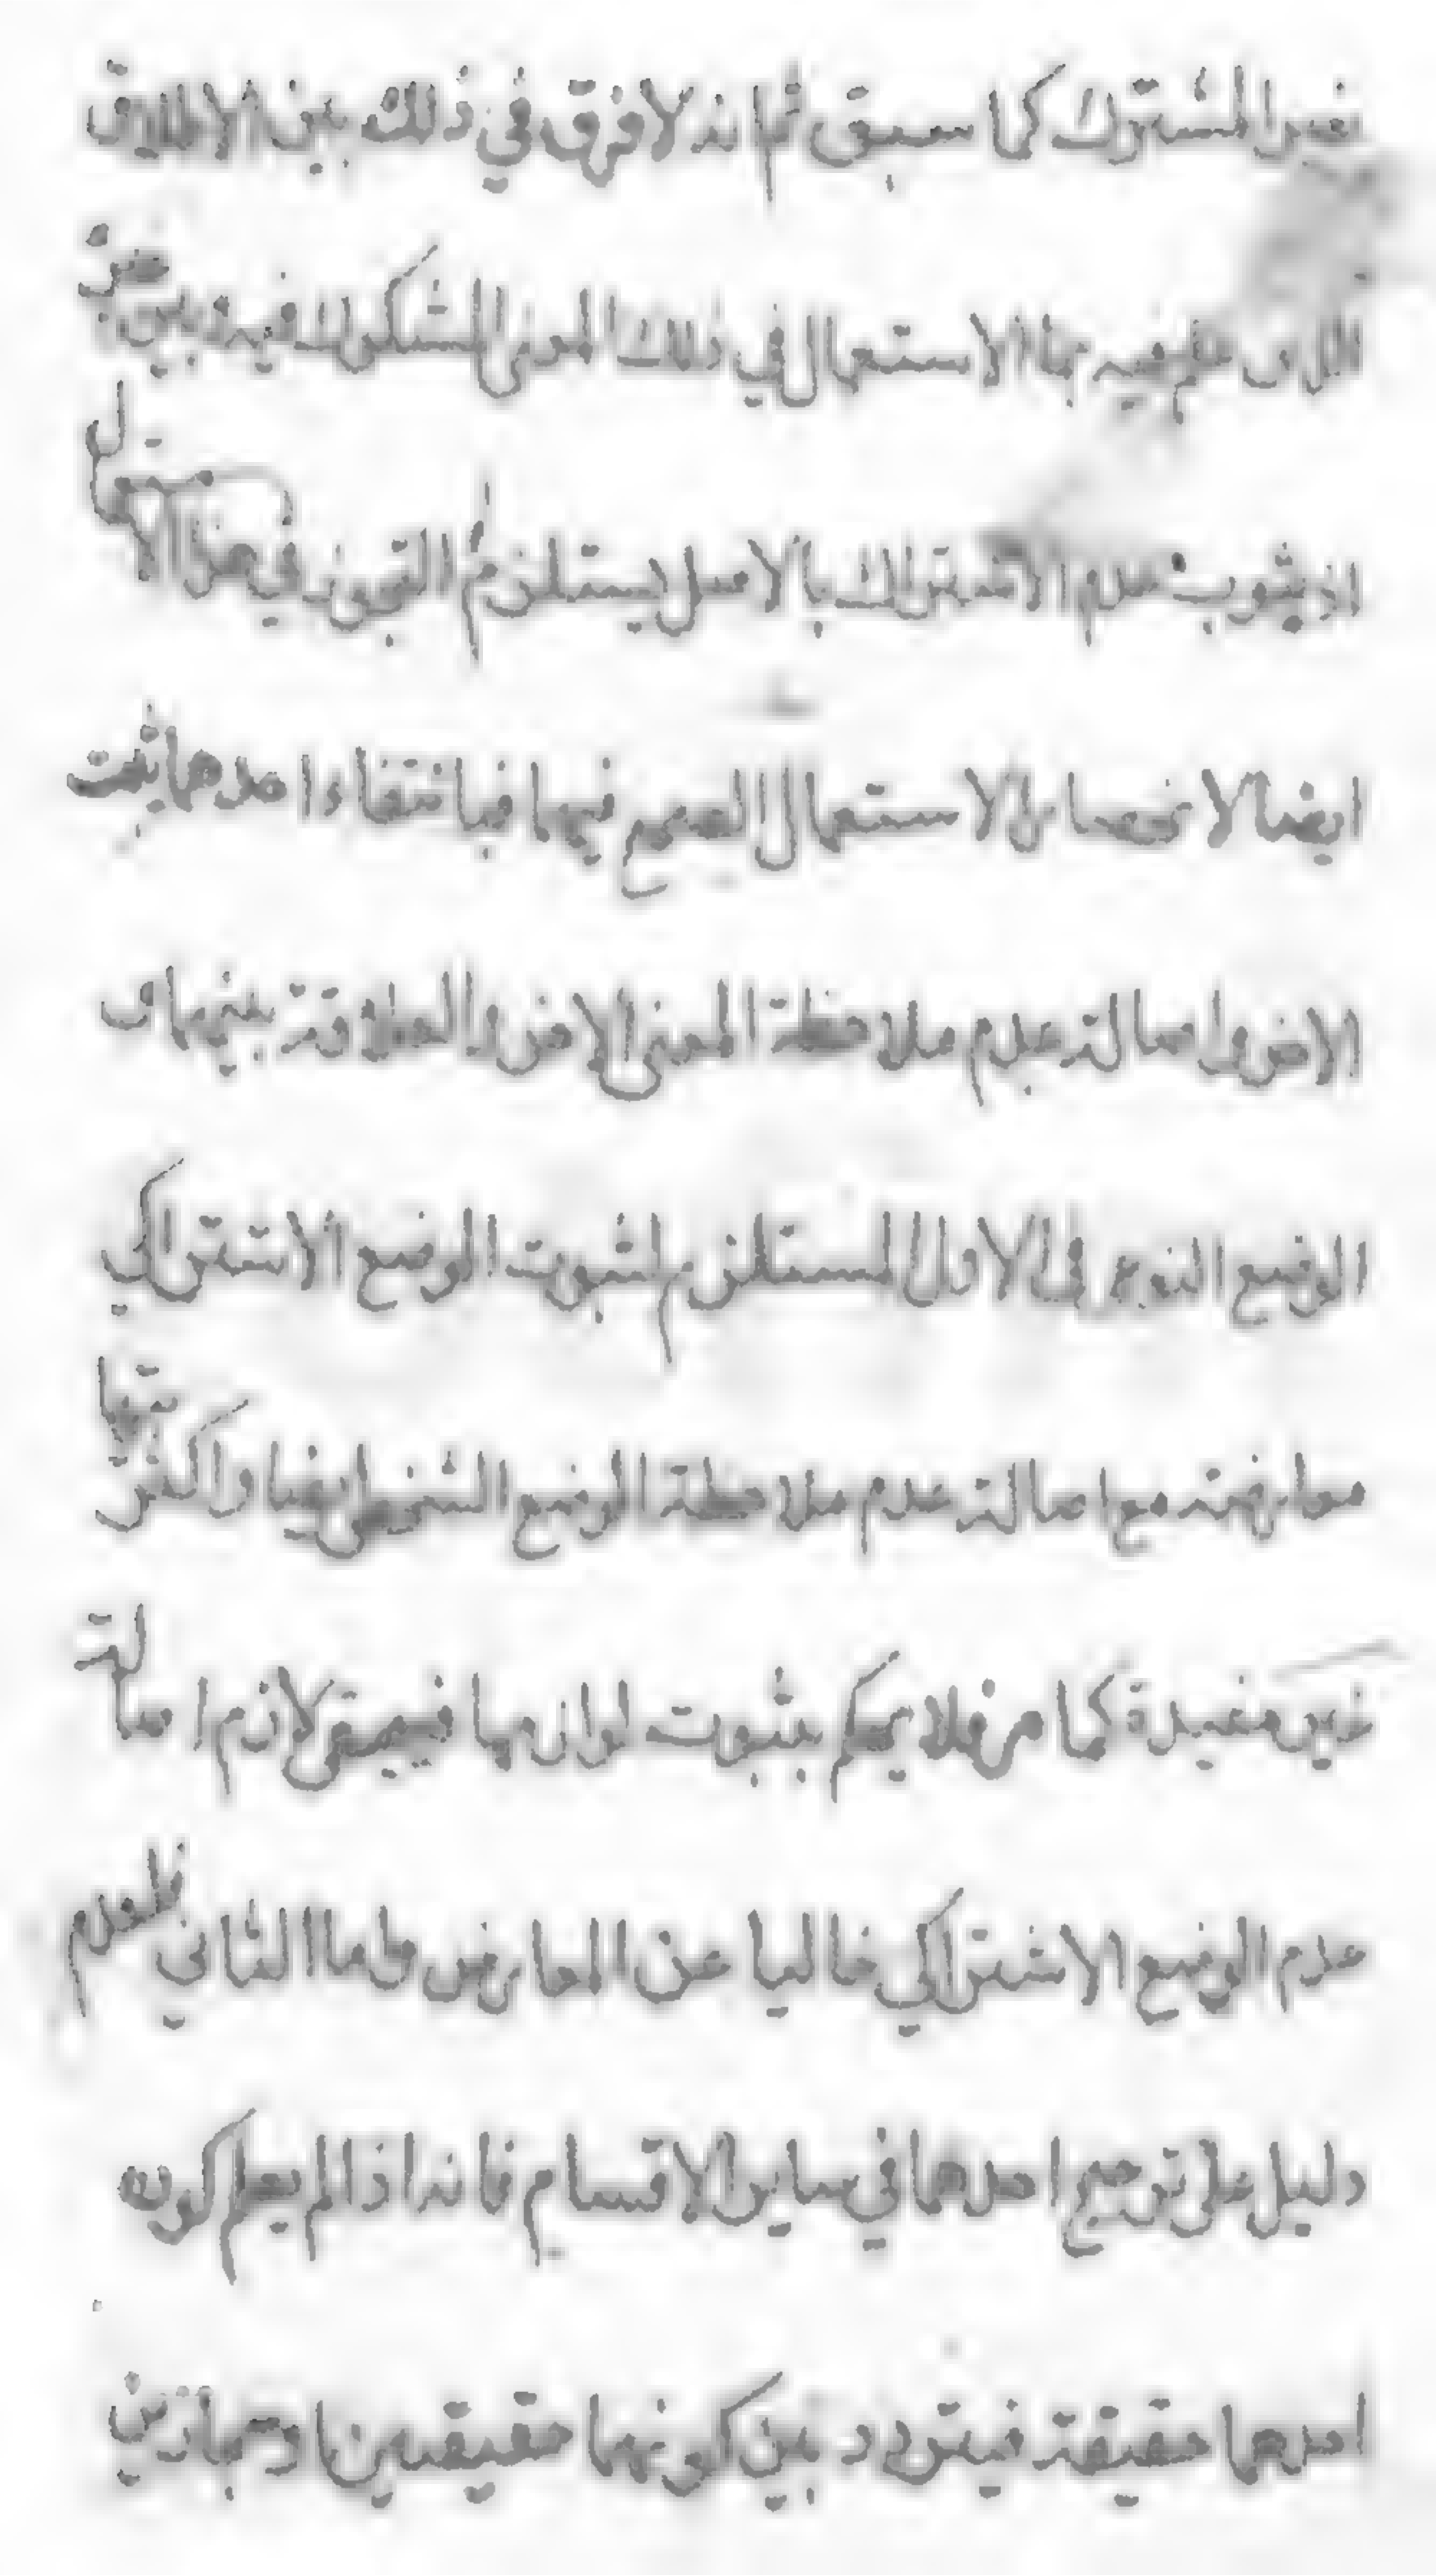 نعين المشترك كما سبق ثم انه لا فرق في ذلك بين الاطلاق
الذي علم فيه بالاستعمال في ذلك المعنى المشكوك فيه وبين غيره
اذ ثبوت عدم الاشتراك بالاصل يستلزم التجوز في هذا الاستعمال
ايضا لانحصار الاستعمال الصحيح فيهما فبانتفاء احدهما يثبت
الاخر واصالة عدم ملاحظة المعنى الاخر والعلاقة بينهما و
الوضع النوعي في الاول المستلزم لثبوت الوضع الاشتراكي
معارضة مع اصالة عدم ملاحظة الوضع الشخصي ايضا واكثريتها
غير مفيدة كما مر فلا يحكم بثبوت لوازمها فيبقى لازم اصالة
عدم الوضع الاشتراكي خاليا عن المعارض واما الثاني فلعدم
دليل على ترجيح احدهما في ساير الاقسام فانه اذا لم يعلم كون
احدهما حقيقة فيتردد بين كونهما حقيقيين او مجازين